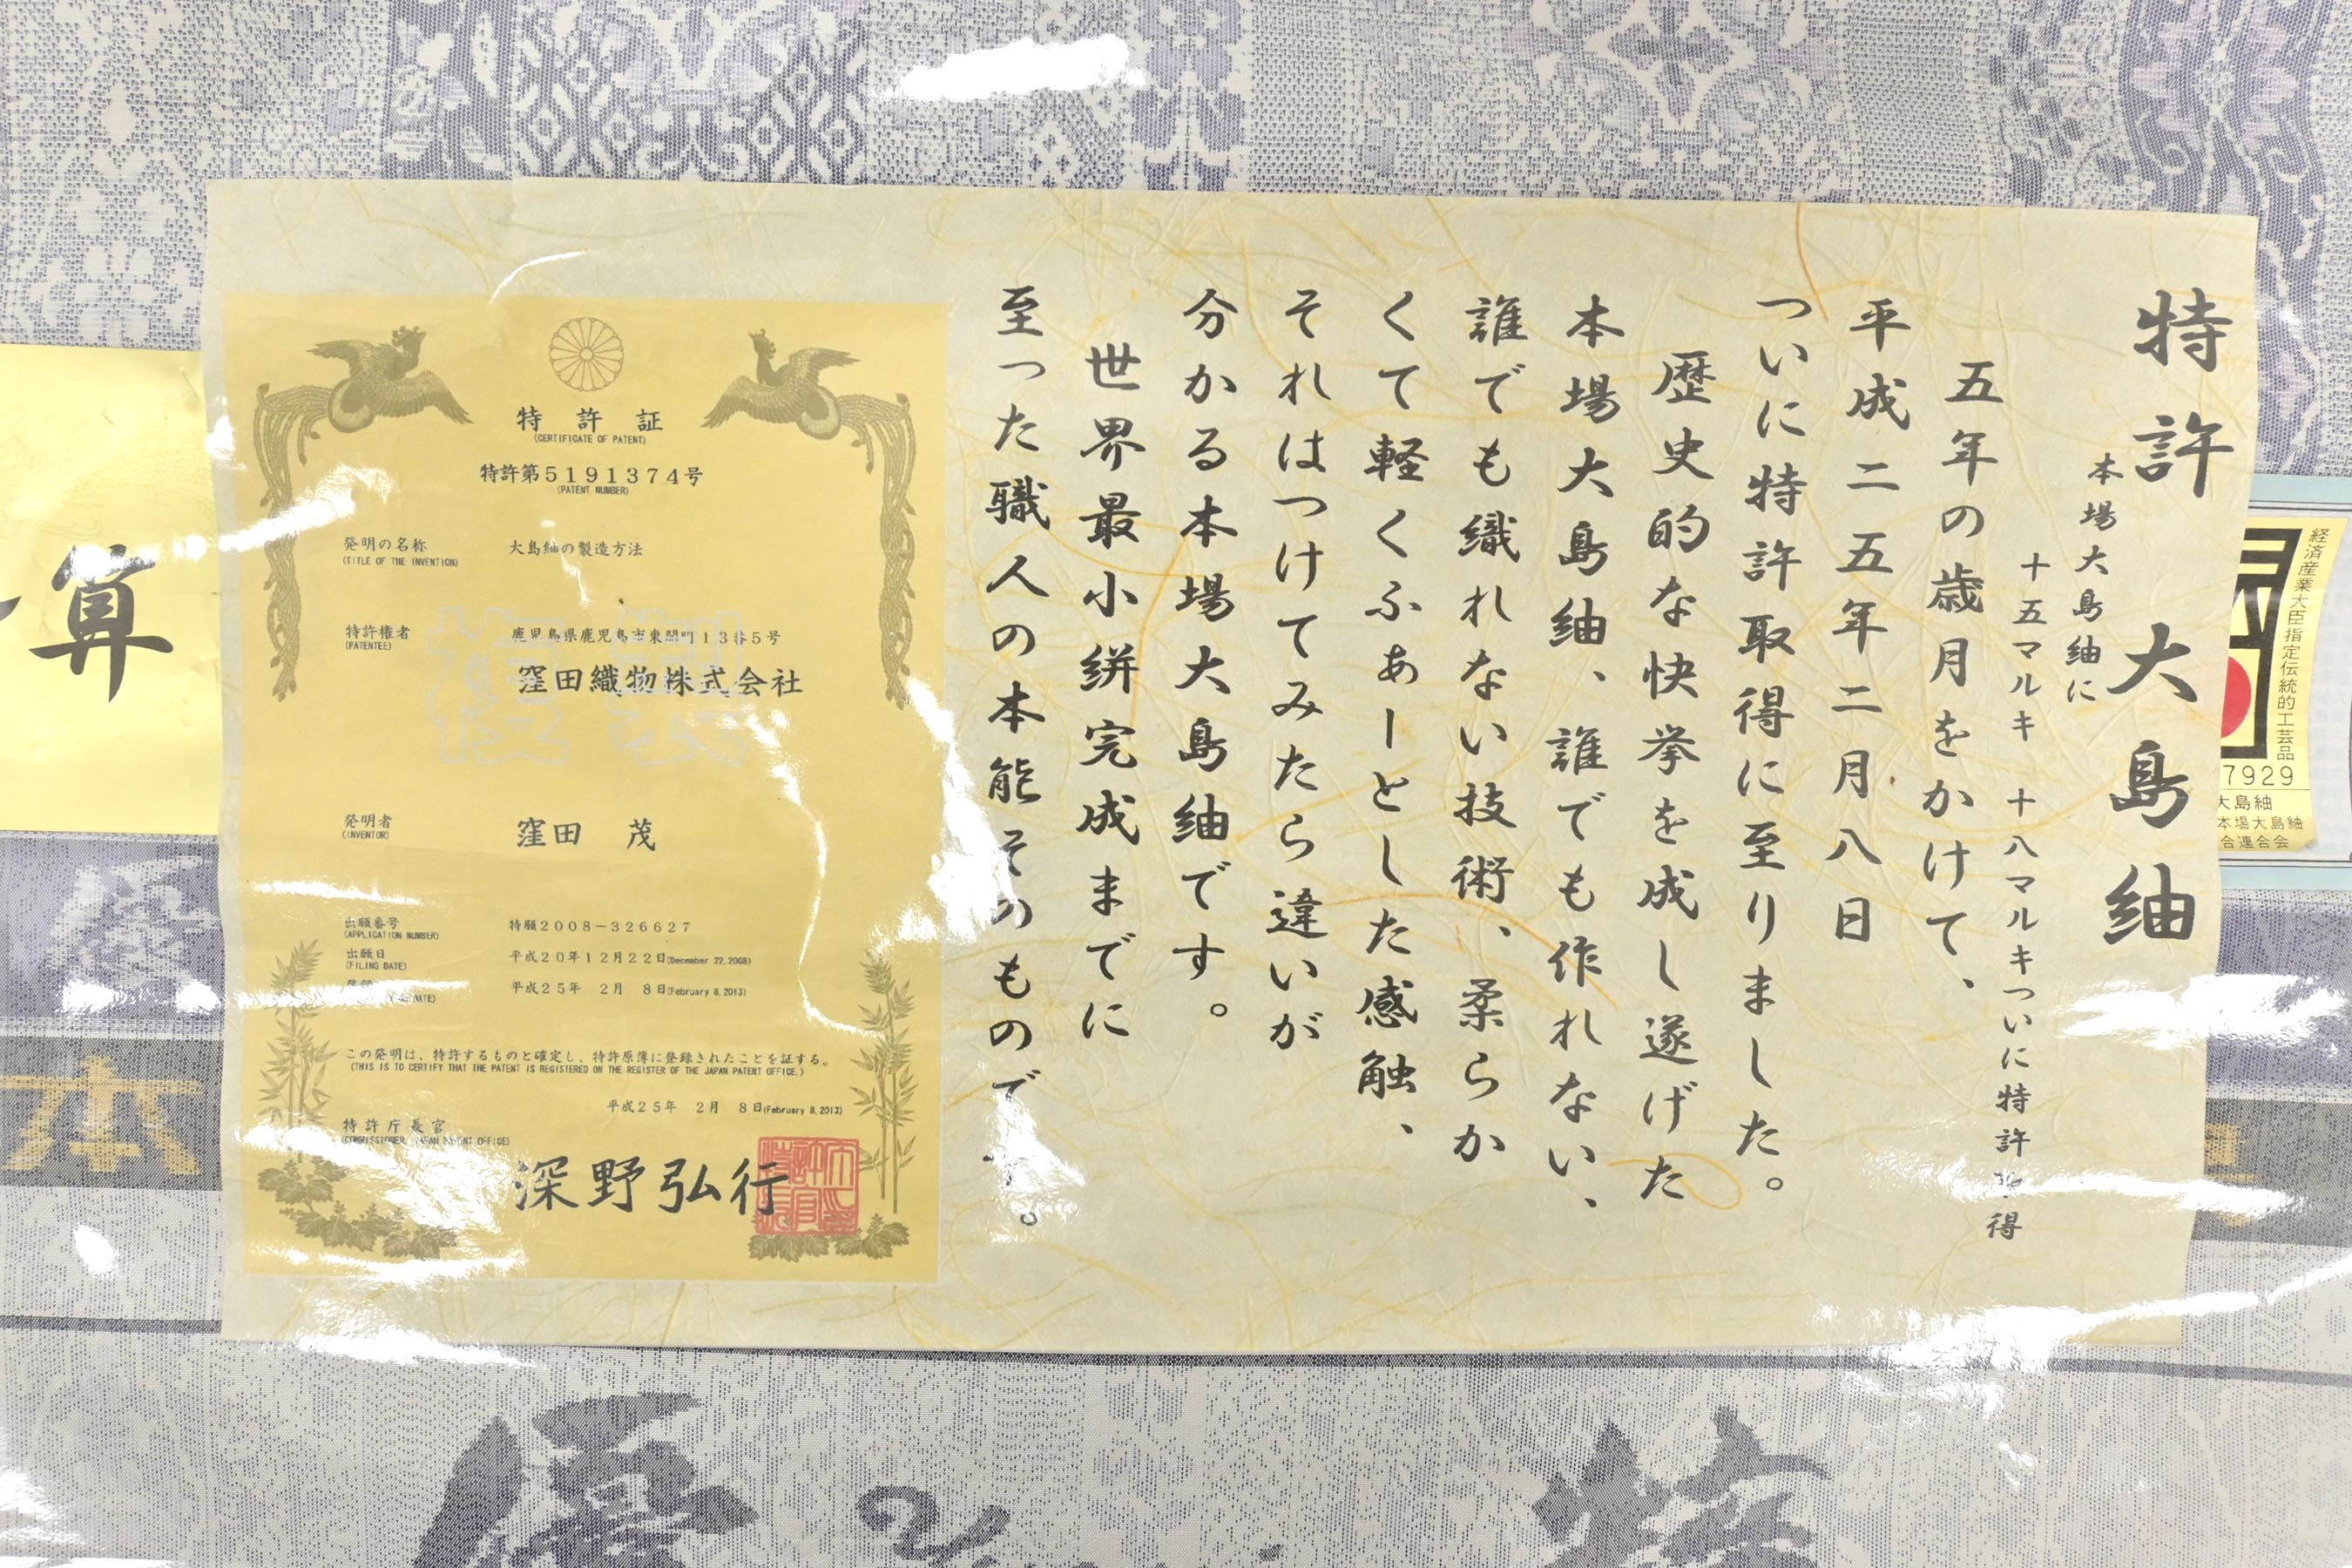 特許 大島紬
本場大島紬に
十五マルキ 十八マルキついに特許取得
五年の歳月をかけて、
平成二五年二月八日
ついに特許取得に至りました。
歴史的な快挙を成し遂げた
本場大島紬、誰でも作れない、
誰でも織れない技術、柔らか
くて軽くふぁーとした感触、
それはつけてみたら違いが
分かる本場大島紬です。
世界最小絣完成までに
至った職人の本能そのものです。
特許証
(CERTIFICATE OF PATENT)
特許第5191374号
(PATENT NUMBER)
発明の名称
(TITLE OF THE INVENTION)
大島紬の製造方法
特許権者
(PATENTEE)
鹿児島県鹿児島市東開町13番5号
窪田織物株式会社
発明者
(INVENTOR)
窪田 茂
出願番号
(APPLICATION NUMBER)
特願2008-326627
出願日
(FILING DATE)
平成20年12月22日(December 22,2008)
平成25年 2月 8日(February 8,2013)
この発明は、特許するものと確定し、特許原簿に登録されたことを証する。
(THIS IS TO CERTIFY THAT THE PATENT IS REGISTERED ON THE REGISTER OF THE JAPAN PATENT OFFICE.)
平成25年 2月 8日(February 8,2013)
特許庁長官
(COMMISSIONER, JAPAN PATENT OFFICE)
深野弘行
経済産業大臣指定伝統的工芸品
7929
大島紬
本場大島紬
合連合会
算
本
優
特